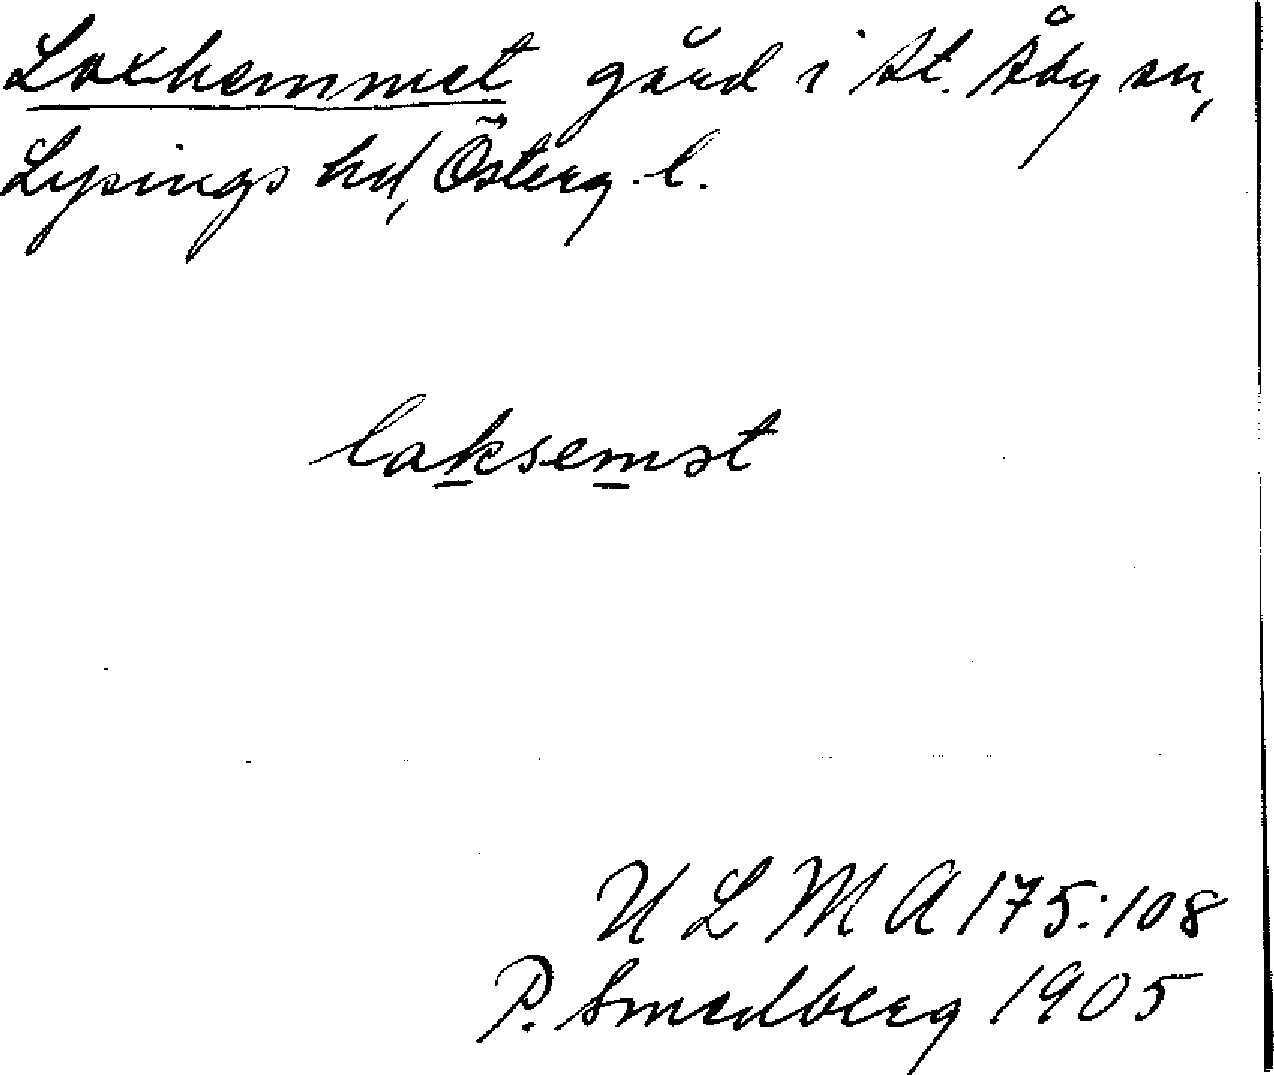 Loxhemmet gård i St. Åby sn,
Lysings hd, Österg. l.
laksemst
U L M A 175:108
P. Smedberg 1905